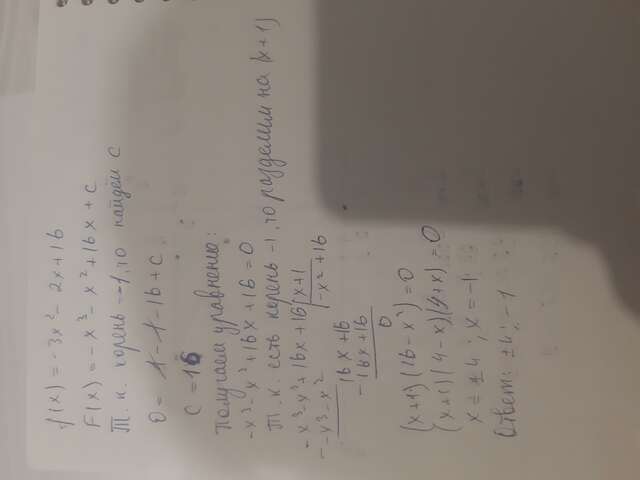 f(x) = -3x² - 2x + 16
F(x) = -x³ - x² + 16x + C
Т. к. корень -1, то найдём C
0 = 1 - 1 - 16 + C
C = 16
Получаем уравнение:
-x³ - x² + 16x + 16 = 0
Т. к. есть корень -1, то разделим на (x+1)
-x³ - x² + 16x + 16 | x+1
-x³ - x² | -x² + 16
16x + 16
-16x + 16
0
(x+1)(16 - x²) = 0
(x+1)(4 - x)(4 + x) = 0
x = ±4; x = -1
Ответ: ±4; -1